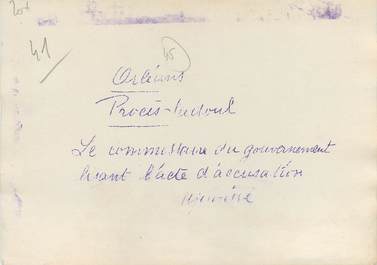 41
45
Orléans
Procès-Ladoul
Le commissaire du gouvernement
lisant l'acte d'accusation